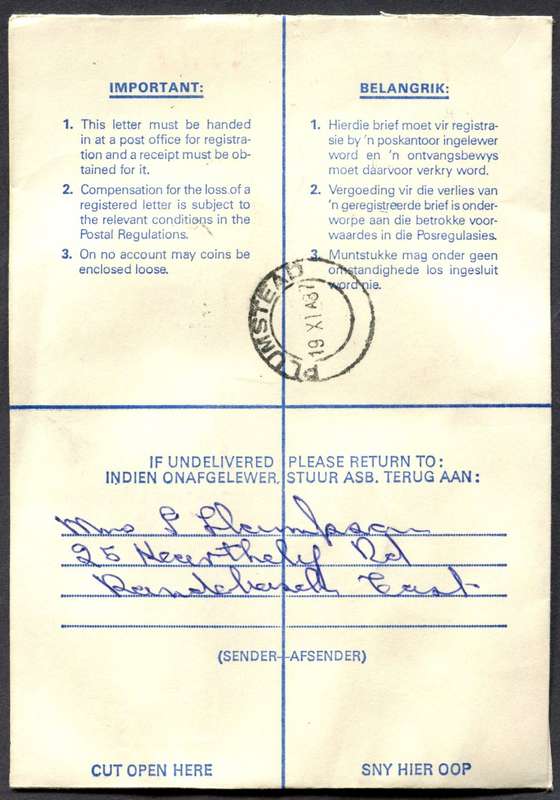 IMPORTANT:
1. This letter must be handed
in at a post office for regist-
ration and a receipt must be ob-
tained for it.
2. Compensation for the loss of a
registered letter is subject to
the relevant conditions in the
Postal Regulations.
3. On no account may coins be
enclosed loose.
BELANGRIK:
1. Hierdie brief moet vir registra-
sie by 'n poskantoor ingelewer
word en 'n ontvangsbewys
moet daarvoor verkry word.
2. Vergoeding vir die verlies van
'n geregistreerde brief is onder-
worpe aan die betrokke voor-
waardes in die Posregulasies.
3. Muntstukke mag onder geen
omstandighede los ingesluit
word nie.
PLUMSTEAD
19 XI A87
IF UNDELIVERED PLEASE RETURN TO:
INDIEN ONAFGELEWER, STUUR ASB. TERUG AAN:
Mrs
25 Rd
East
(SENDER–AFSENDER)
CUT OPEN HERE
SNY HIER OOP